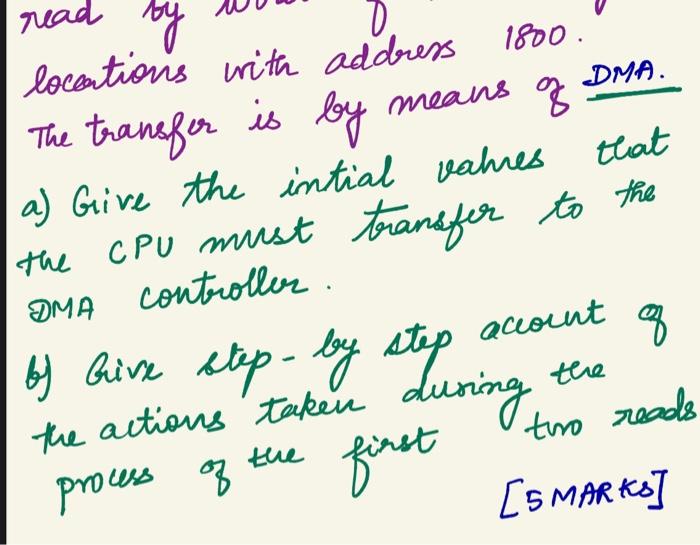 read by
locations with address 1800.
The transfer is by means of DMA.
a) Give the intial values that
the CPU must transfer to the
DMA controller.
b) Give step-by step account of
the actions taken during the
process of the first two reads
[5 MARKS]